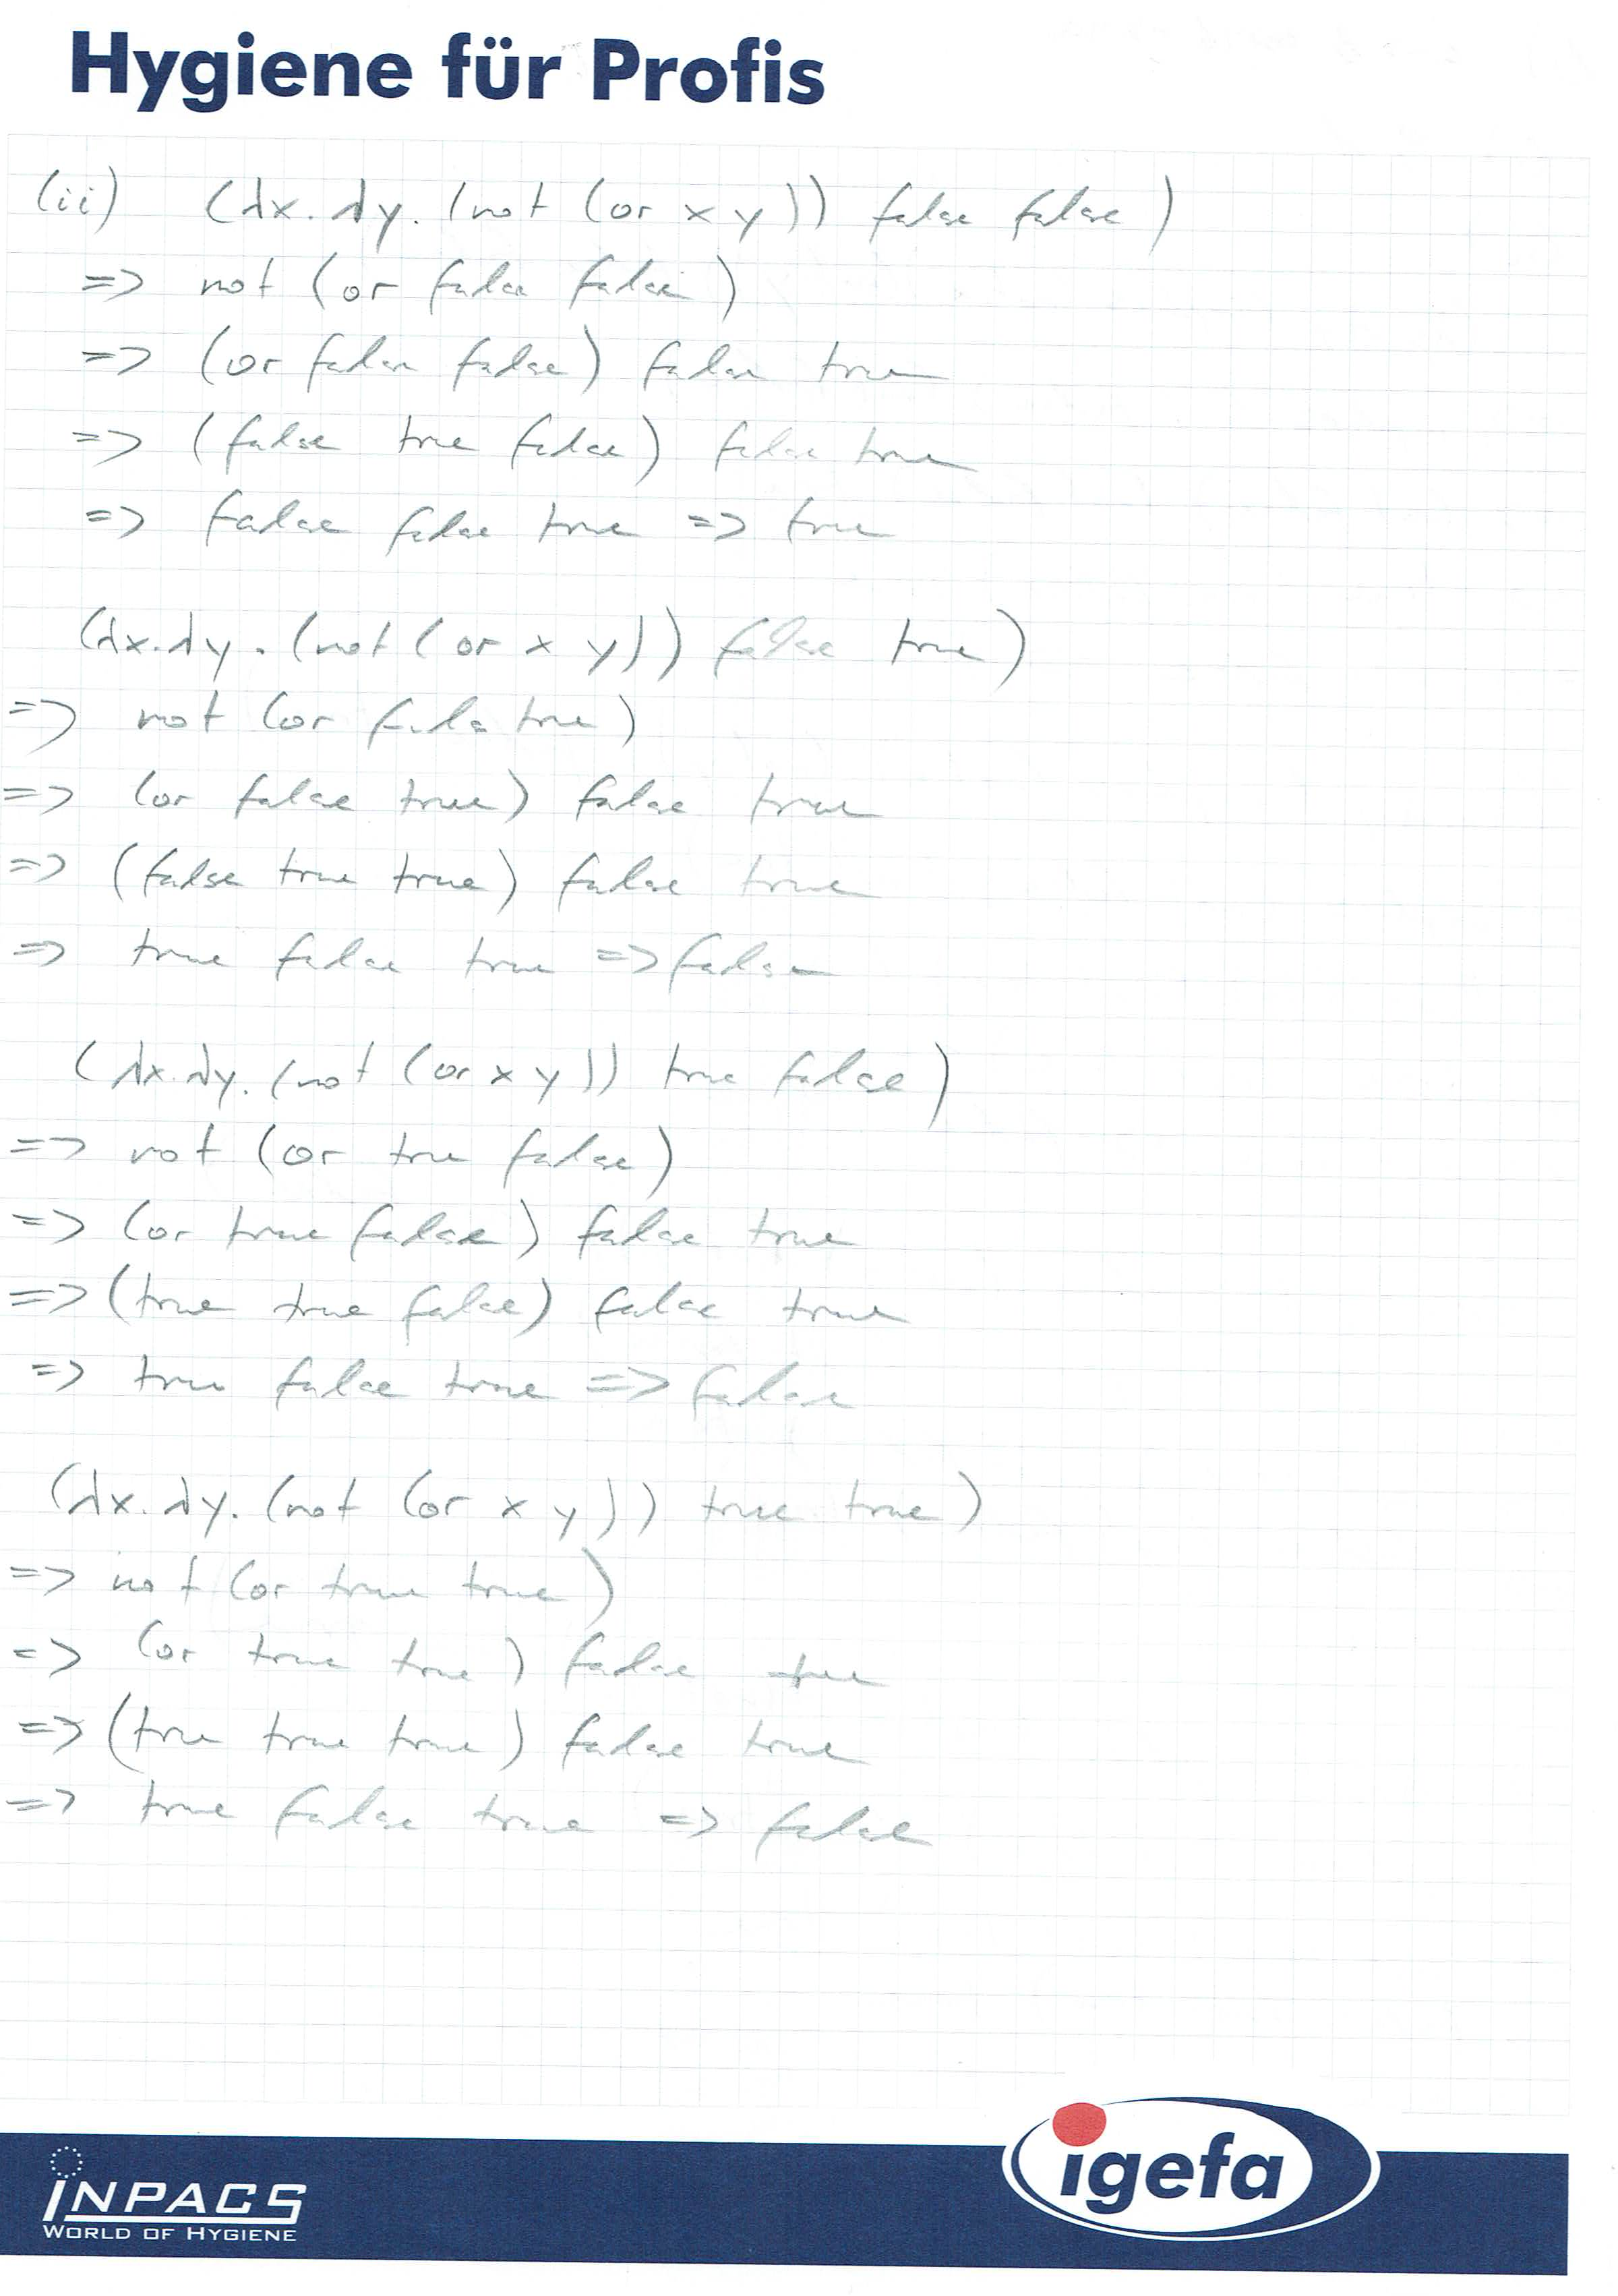 Hygiene für Profis
(ii) (λx.λy.(not (or x y)) false false)
=> not (or false false)
=> (or false false) false true
=> (false true false) false true
=> false false true => true
(λx.λy.(not (or x y)) false true)
=> not (or false true)
=> (or false true) false true
=> (false true true) false true
=> true false true => false
(λx.λy.(not (or x y)) true false)
=> not (or true false)
=> (or true false) false true
=> (true true false) false true
=> true false true => false
(λx.λy.(not (or x y)) true true)
=> not (or true true)
=> (or true true) false true
=> (true true true) false true
=> true false true => false
igefa
INPACS
WORLD OF HYGIENE